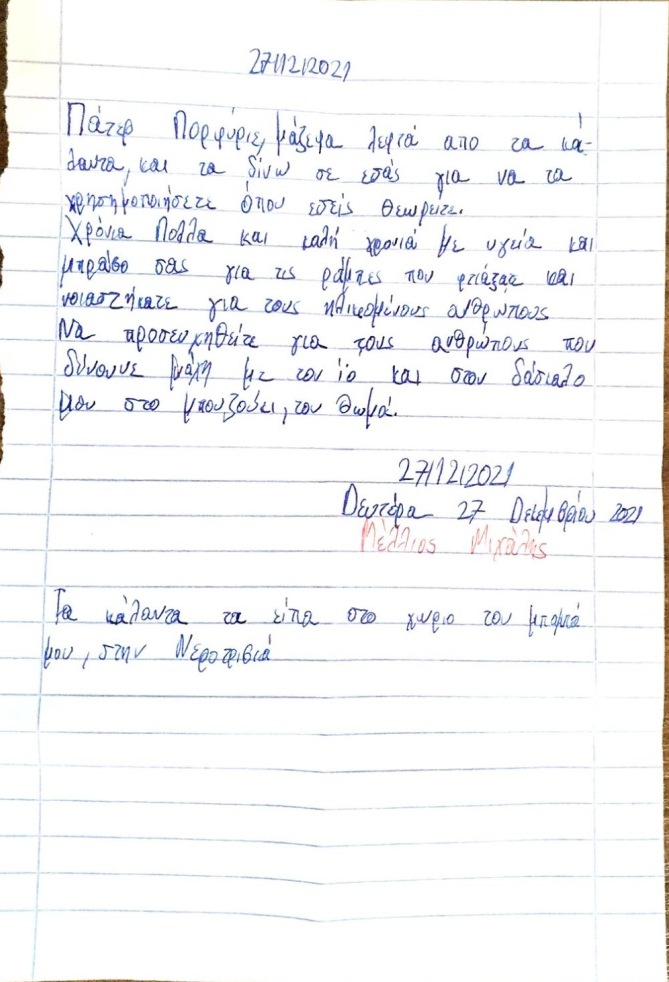 27/12/2021
Πάτερ Πορφύριε, μάζεψα λεφτά απο τα κά-
λαντα, και τα δίνω σε εσάς για να τα
χρησημοποιήσετε όπου εσείς θεωρείτε.
Χρόνια Πολλα και καλή χρονιά με υγεία και
μπράβο σας για τις ράμπες που φτιάξατε και
νοιαστήκατε για τους ηλικιομένους ανθρώπους
Να προσευχηθείτε για τους ανθρώπους που
δύνουνε μάχη με τον ίο και στον δάσκαλο
μου στο μπουζούκι, τον Θωμά.
27/12/2021
Δευτέρα 27 Δεκεμβρίου 2021
Μέλλιος Μιχάλης
Τα κάλαντα τα είπα στο χωριο του μπαμπά
μου, στην Νεροτριβιά